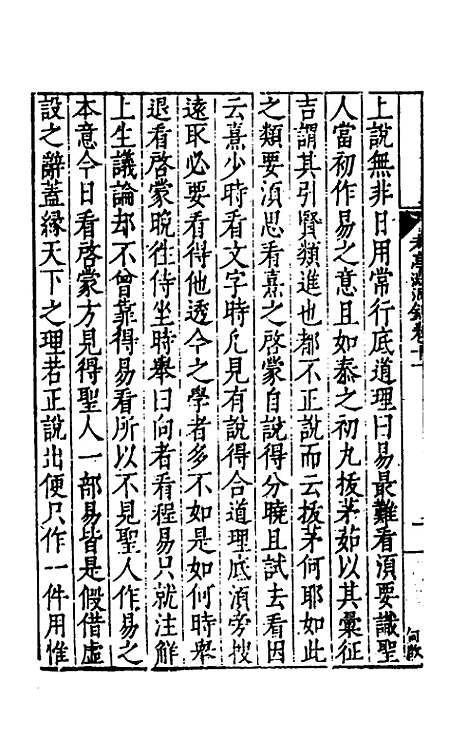 上說無非日用常行底道理曰易最難看須要識聖
人當初作易之意且如泰之初九拔茅茹以其彙征
吉謂其引賢類進也都不正說而云拔茅何耶如此
之類要須思看熹之啓蒙自說得分曉且試去看因
云熹少時看文字時凡見有說得合道理底須旁搜
遠取必要看得他透今之學者多不如是如何時舉
退看啓蒙晩徃侍坐時舉曰向者看程易只就注解
上生議論却不曾靠得易看所以不見聖人作易之
本意今日看啓蒙方見得聖人一部易皆是假借虛
設之辭蓋縁天下之理若正說出便只作一件用惟
考亭淵源錄卷十一